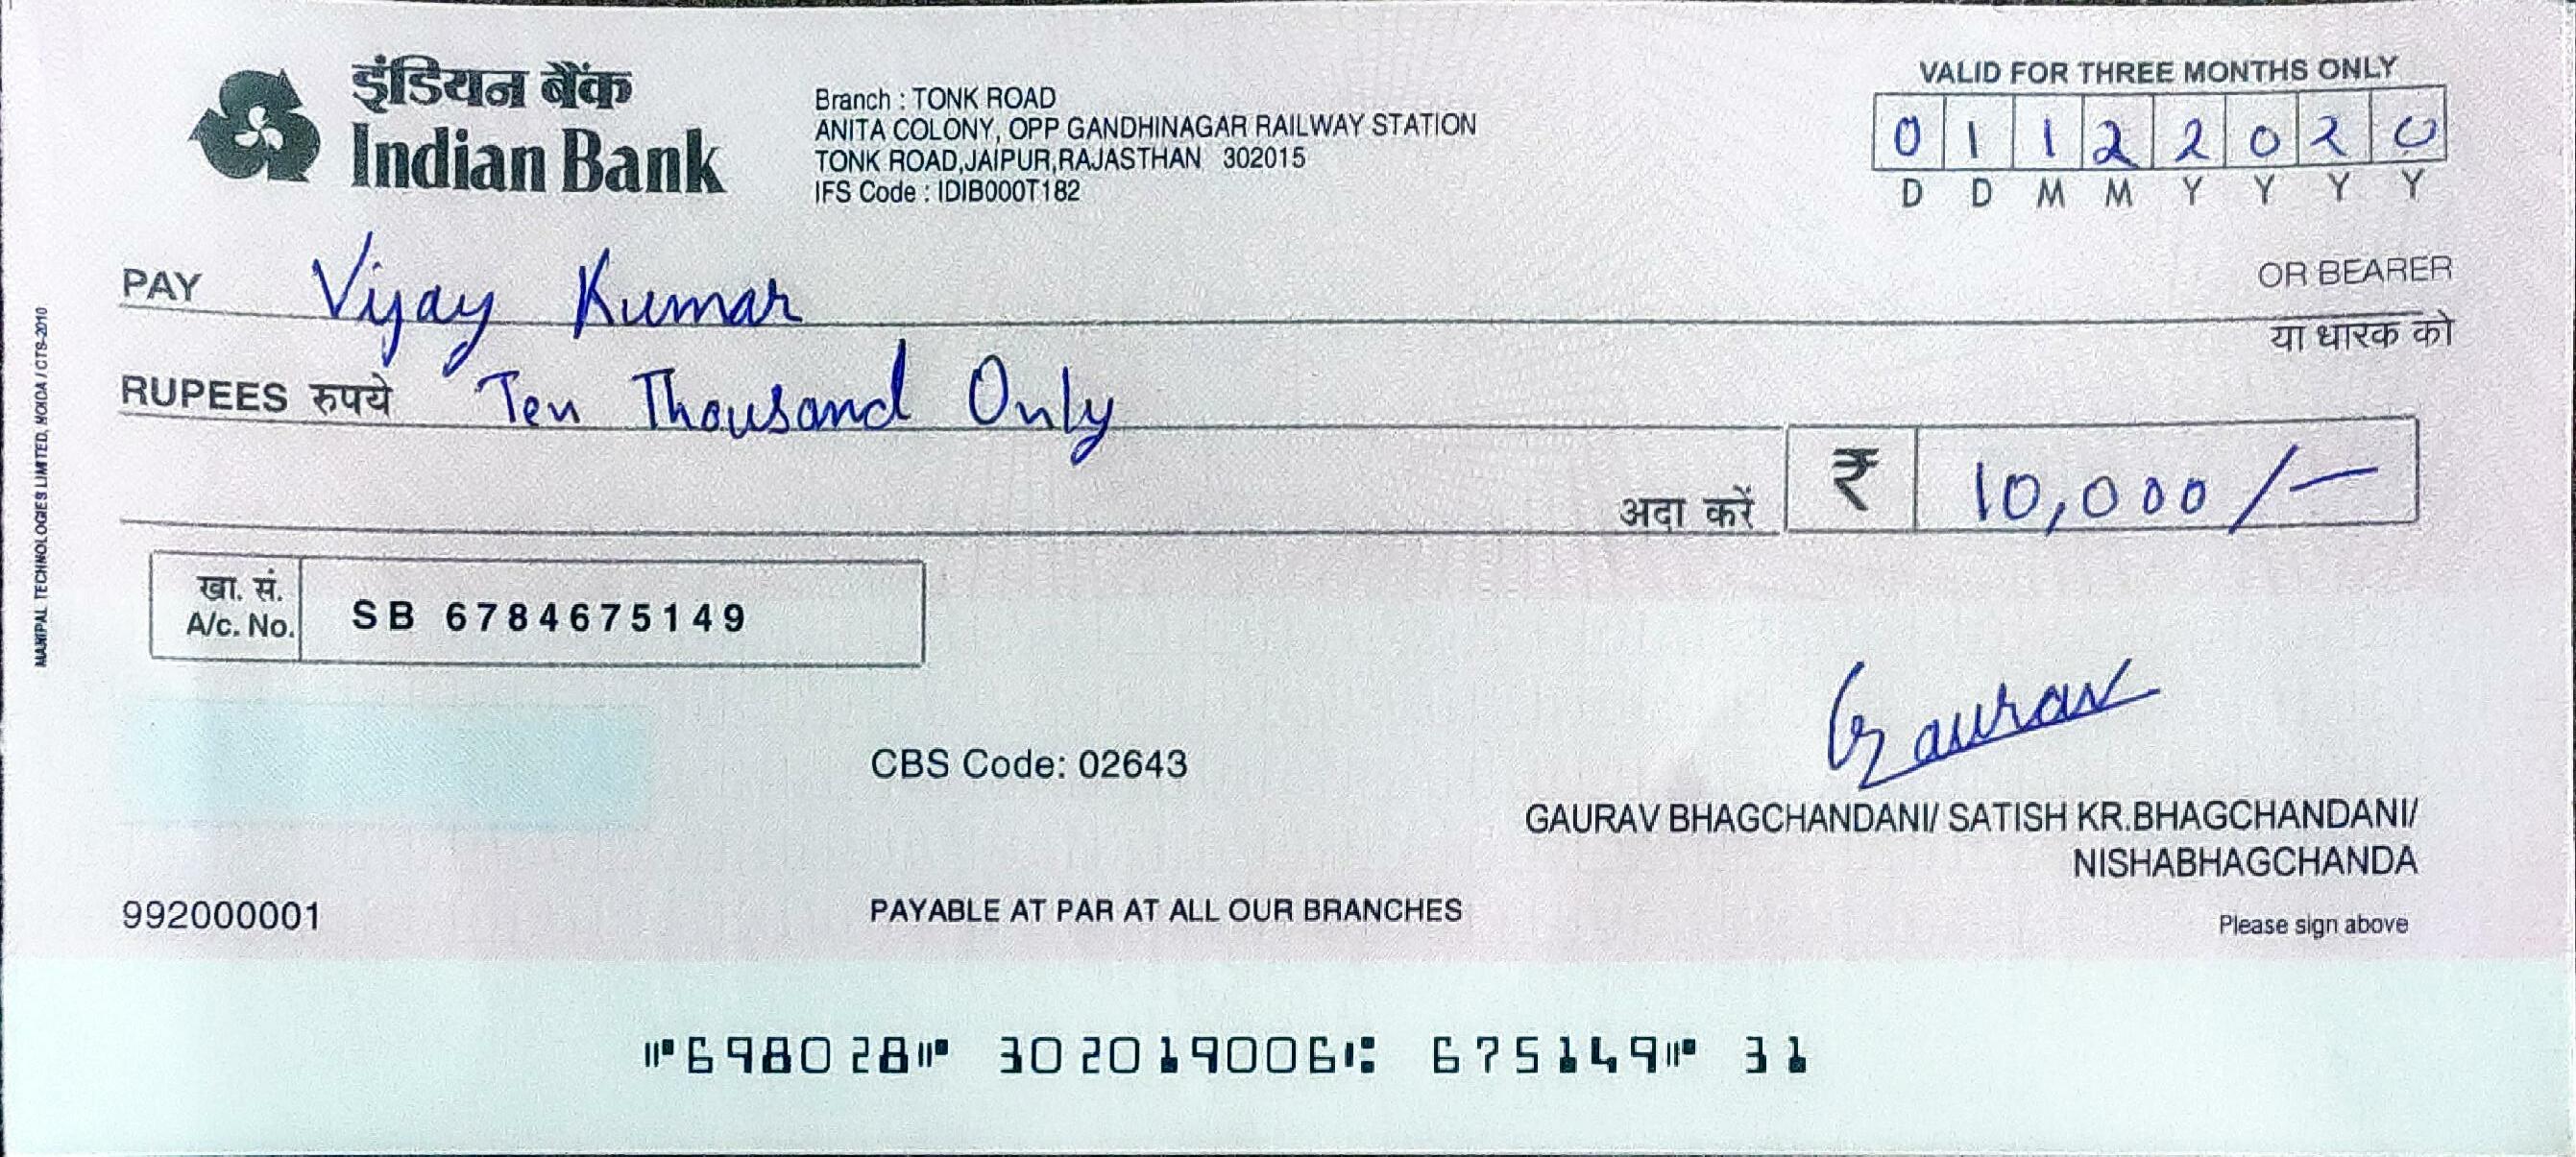 इंडियन बैंक
Indian Bank
Branch : TONK ROAD
ANITA COLONY, OPP GANDHINAGAR RAILWAY STATION
TONK ROAD,JAIPUR,RAJASTHAN 302015
IFS Code : IDIB000T182
VALID FOR THREE MONTHS ONLY
0 1 1 2 2 0 2 0
D D M M Y Y Y Y
PAY Vijay Kumar OR BEARER
या धारक को
RUPEES रुपये Ten Thousand Only
अदा करें ₹ 10,000/-
खा. सं.
A/c. No. SB 6784675149
MANIPAL TECHNOLOGIES LIMITED, NOIDA / CTS-2010
Gaurav
CBS Code: 02643
GAURAV BHAGCHANDANI/ SATISH KR.BHAGCHANDANI/
NISHABHAGCHANDA
992000001 PAYABLE AT PAR AT ALL OUR BRANCHES
Please sign above
⑈698028⑈ 302019006⑆ 675149⑈ 31